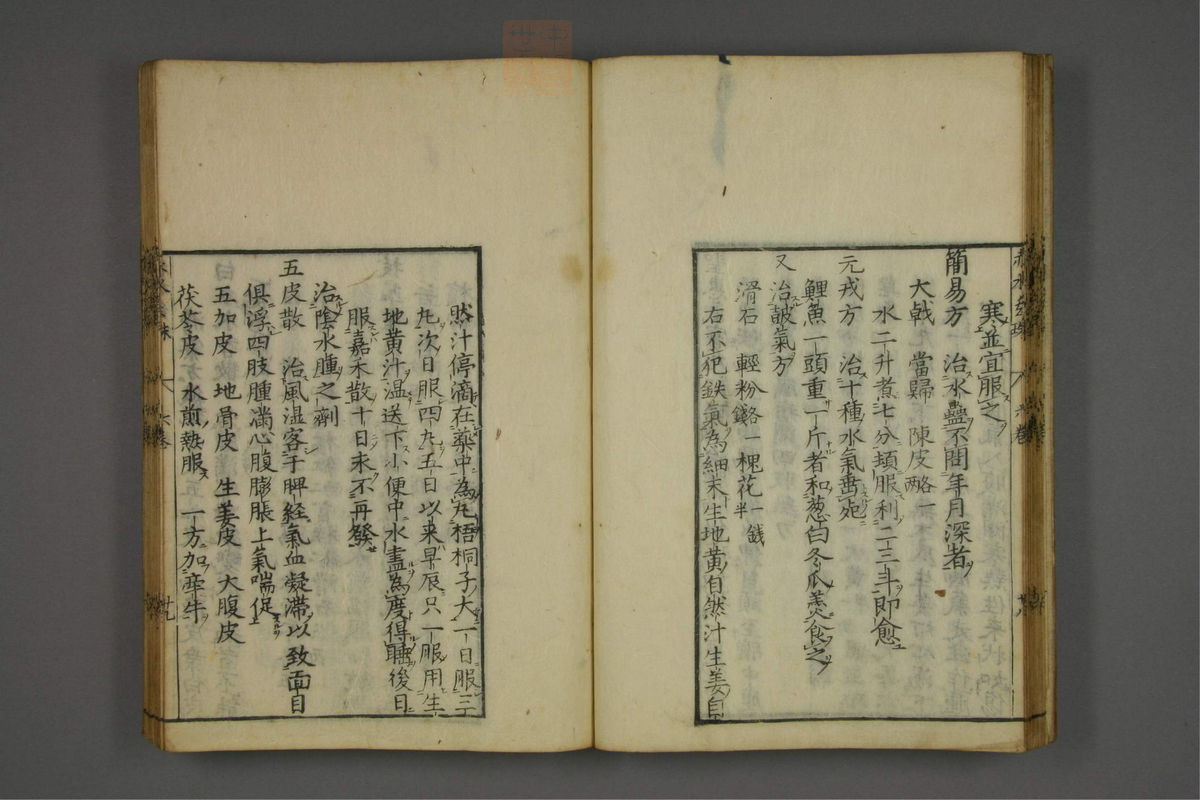 寒並宜服之
簡易方 治水蠱不問年月深者
大戟 當歸 陳皮略一
水二升煮七分頓服利二三斗即愈
元戎方 治十種水氣
鯉魚一頭重一斤者和葱白冬瓜羹食之
又治皷氣方
滑石 輕粉錢一 槐花一錢半
右不犯鉄氣為細末生地黄自然汁生姜自
然汁停滴在藥中為丸梧桐子大一日服三
丸次日服四丸五日以来早辰只一服用生
地黄汁温送下小便中水盡為度得睡後日
服嘉禾散十日永不再發
治陰水腫之劑
五皮散 治風湿客于脾経氣血凝滞以致面目
俱浮四肢腫滿心腹膨脹上氣喘促
五加皮 地骨皮 生姜皮 大腹皮
茯苓皮 水煎熱服 一方加牽牛